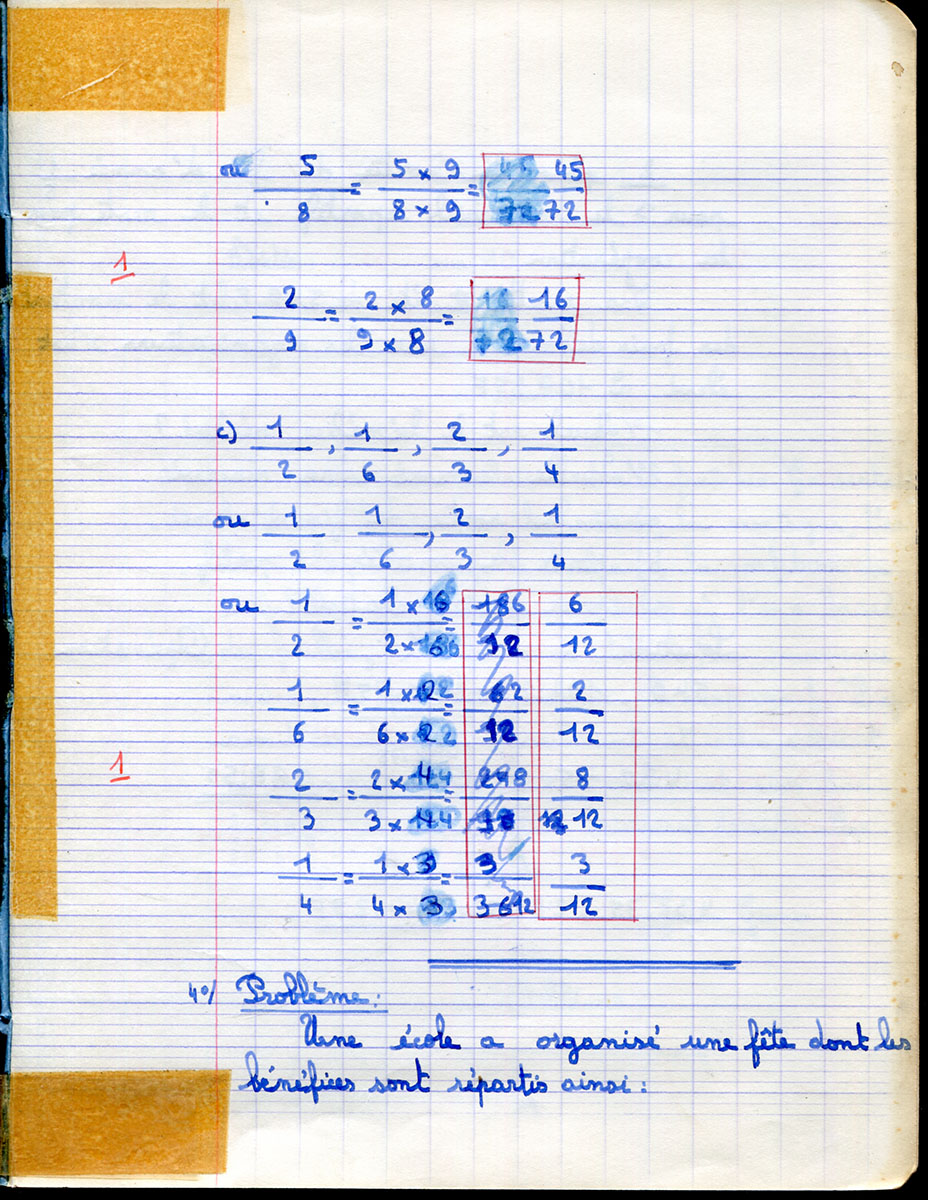 ou 5/8 = 5 x 9 / 8 x 9 = 45/72 45/72
1
2/9 = 2 x 8 / 9 x 8 = 16/72 16/72
c) 1/2 , 1/6 , 2/3 , 1/4
ou 1/2 1/6 , 2/3 , 1/4
ou 1/2 = 1 x 6 / 2 x 6 = 6/12 6/12
1/6 = 1 x 2 / 6 x 2 = 2/12 2/12
1
2/3 = 2 x 4 / 3 x 4 = 8 8/12
1/4 = 1 x 3 / 4 x 3 = 3/12 3/12
4°/ Problème :
Une école a organisé une fête dont les
bénéfices sont répartis ainsi :